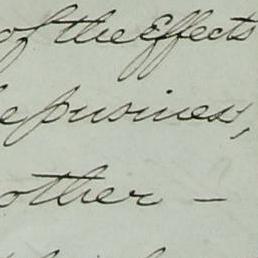 of the Effects
business,
other –